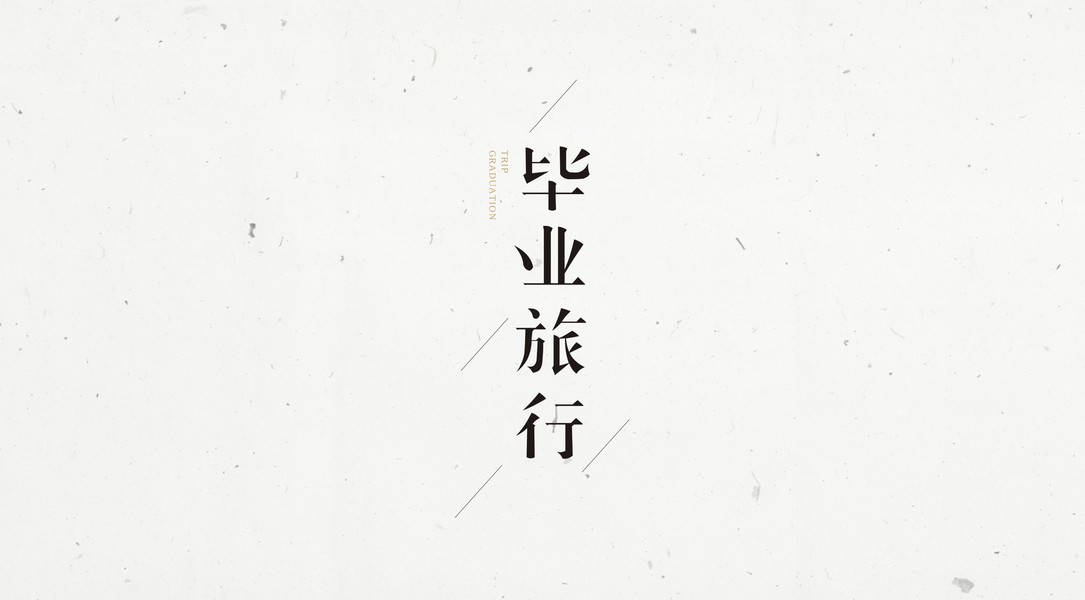 毕业旅行
TRIP
GRADUATION